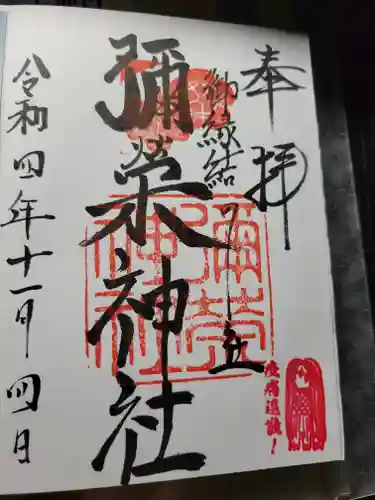 奉拝
御縁結び
彌榮神社
令和四年十一月四日
彌榮神社
疫病退散!